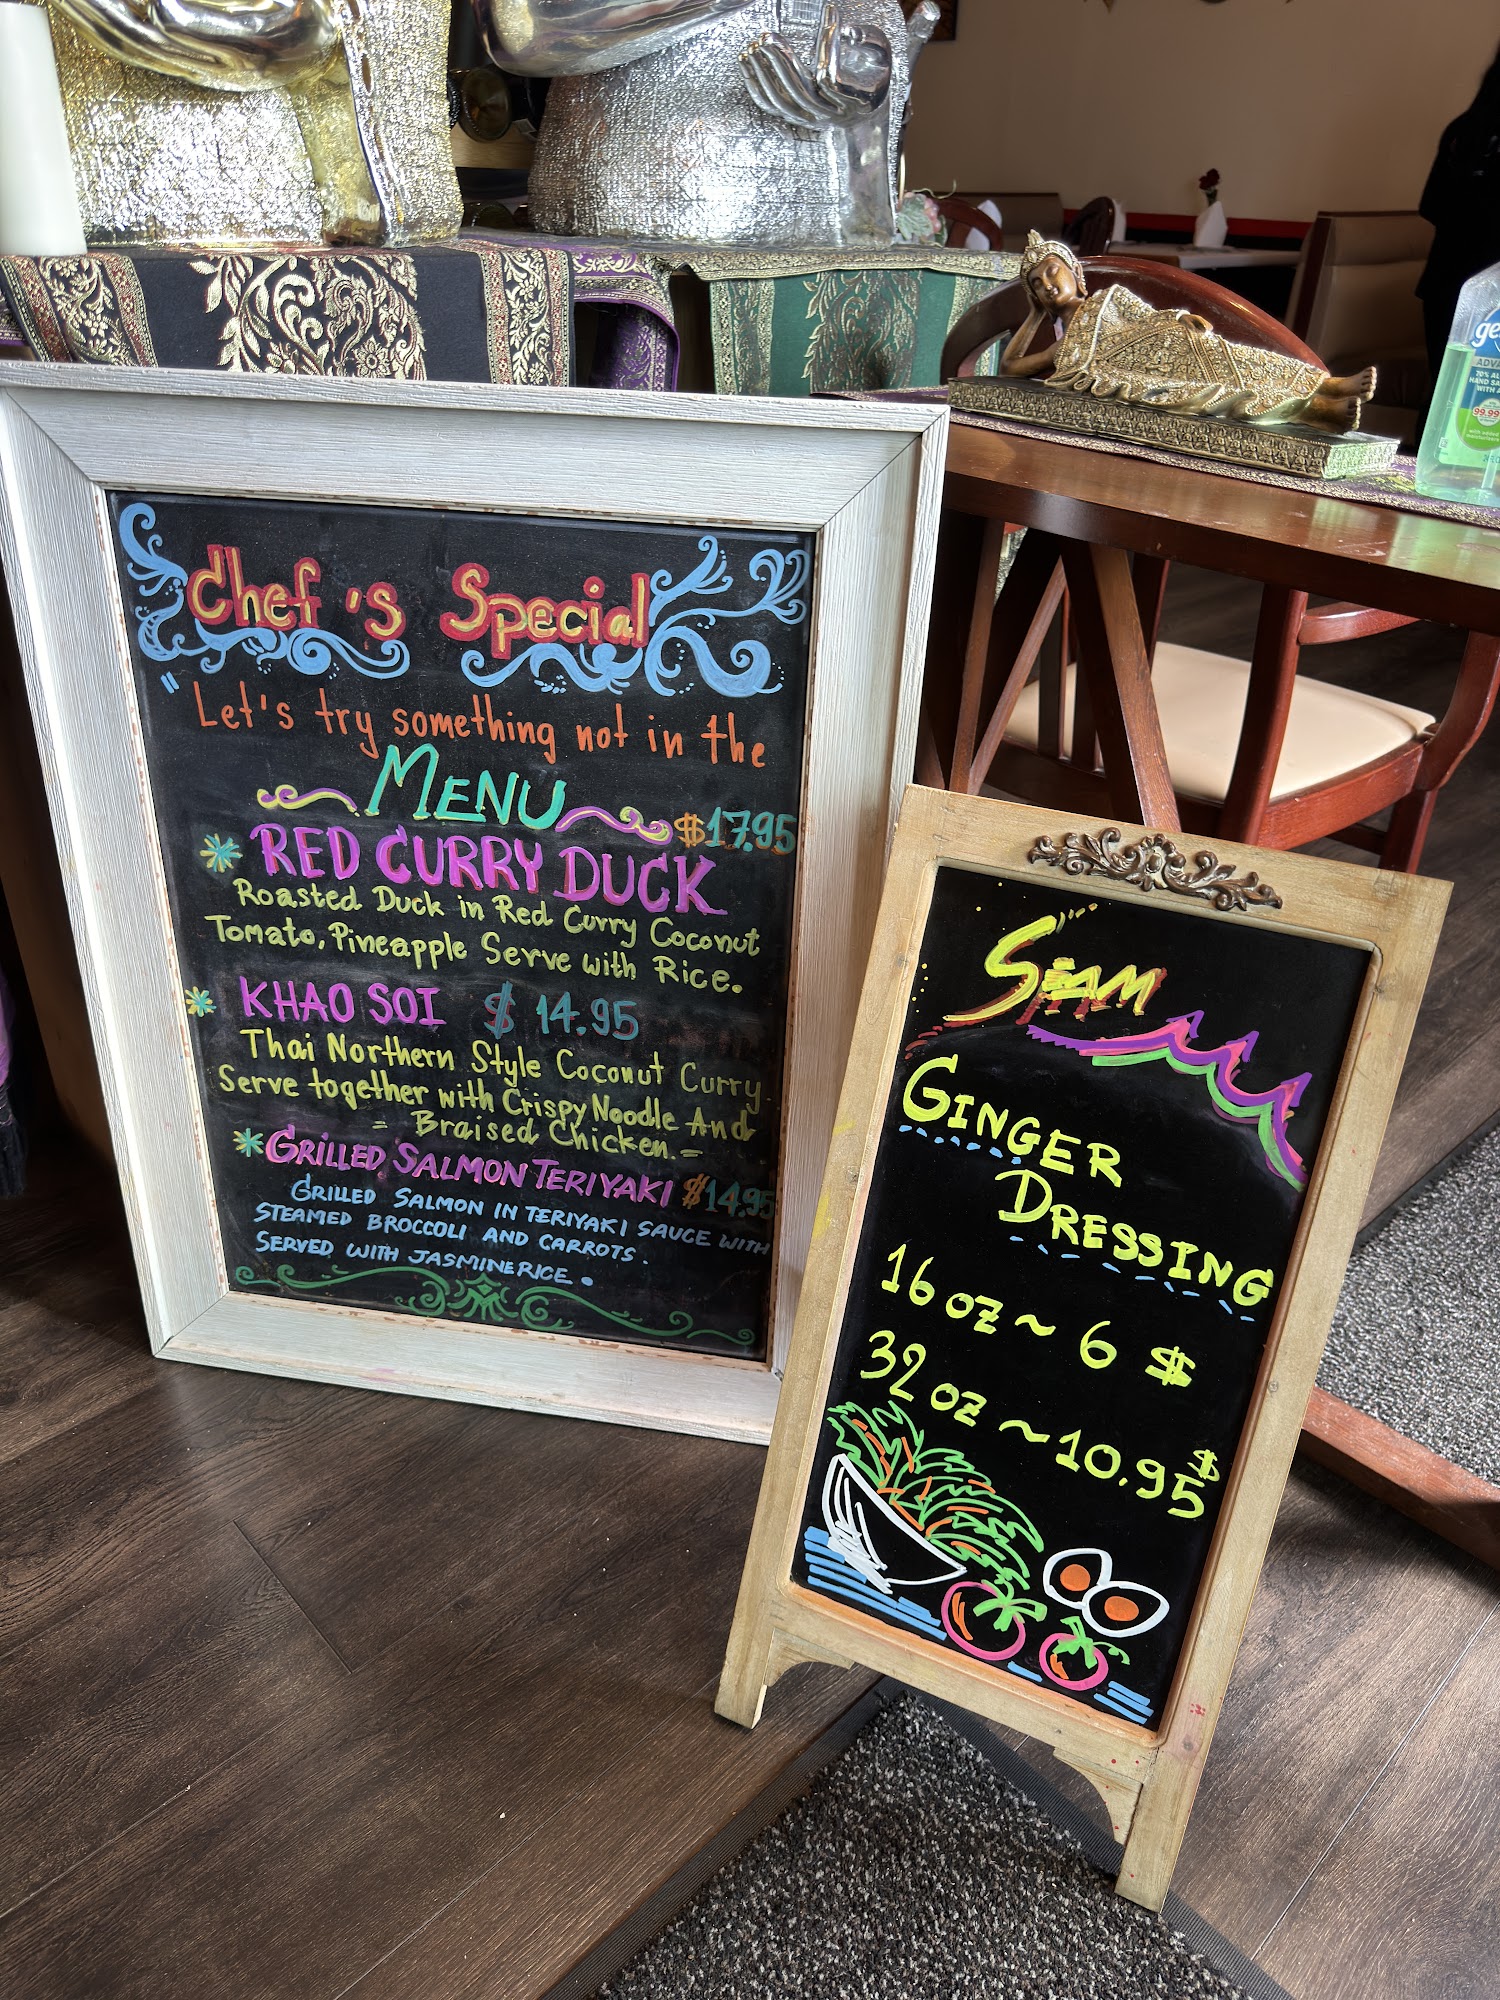 Chef's Special
"Let's try something not in the
MENU
$17.95
RED CURRY DUCK
Roasted Duck in Red Curry Coconut
Tomato, Pineapple Serve with Rice.
KHAO SOI $ 14.95
Thai Northern Style Coconut Curry
Serve together with Crispy Noodle And
= Braised Chicken. =
GRILLED SALMON TERIYAKI $14.95
GRILLED SALMON IN TERIYAKI SAUCE WITH
STEAMED BROCCOLI AND CARROTS.
SERVED WITH JASMINE RICE.
SIAM
GINGER
DRESSING
16 oz ~ 6 $
32 oz ~ 10.95 $
ge
ADVA
70% AL
HAND SA
WITH A
99.99